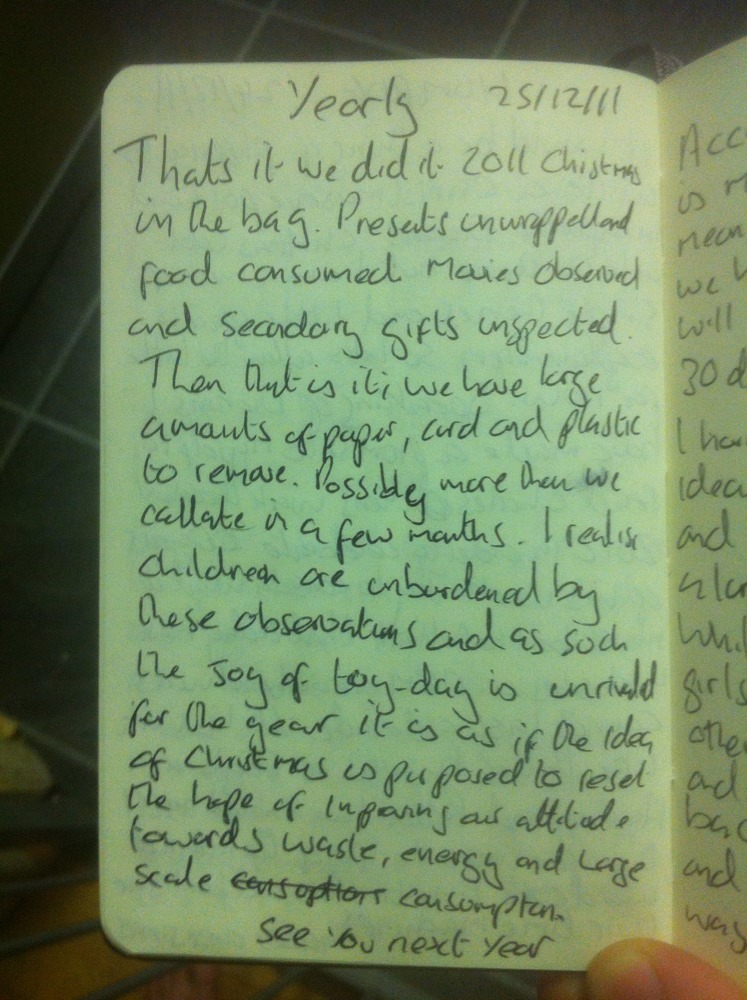 Yearly 25/12/11
Thats it we did it 2011 Chistmas
in the bag. Presents unwrapped and
food consumed Movies observed
and Secondary gifts inspected.
Then that is it; we have large
amounts of paper, card and plastic
to remove. Possibly more than we
callate in a few months. I realise
children are unburdened by
these observations and as such
the joy of toy-day is unrivaled
for the year it is as if the idea
of Christmas is purposed to reset
the hope of improving our attitude
towards waste, energy and large
scale consumption.
See you next year
Acc
is m
mean
we h
will
30 d
I hav
idea
and
a lar
whil
girls
othe
and
bac
and
way